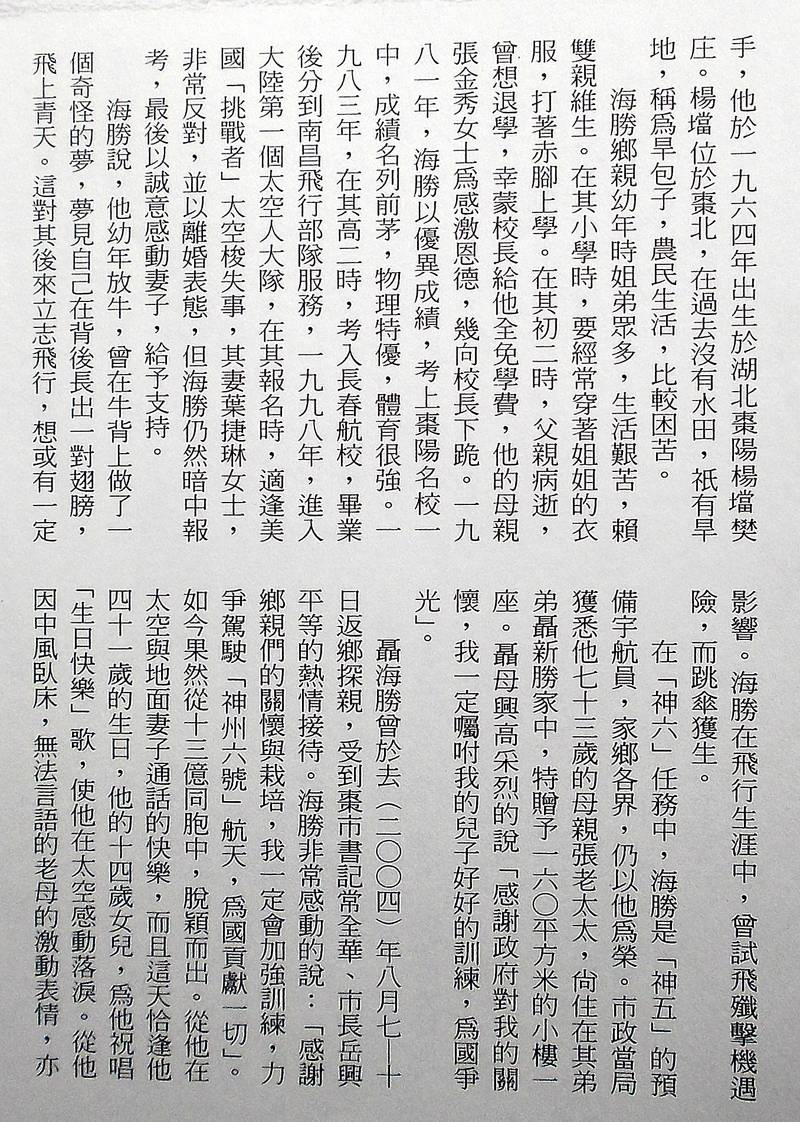 手，他於一九六四年出生於湖北棗陽楊壋樊
庄。楊壋位於棗北，在過去沒有水田，祇有旱
地，稱爲旱包子，農民生活，比較困苦。
海勝鄉親幼年時姐弟眾多，生活艱苦，賴
雙親維生。在其小學時，要經常穿著姐姐的衣
服，打著赤腳上學。在其初二時，父親病逝，
曾想退學，幸蒙校長給他全免學費，他的母親
張金秀女士爲感激恩德，幾向校長下跪。一九
八一年，海勝以優異成績，考上棗陽名校一
中，成績名列前茅，物理特優，體育很強。一
九八三年，在其高二時，考入長春航校，畢業
後分到南昌飛行部隊服務，一九九八年，進入
大陸第一個太空人大隊，在其報名時，適逢美
國「挑戰者」太空梭失事，其妻葉捷琳女士，
非常反對，並以離婚表態，但海勝仍然暗中報
考，最後以誠意感動妻子，給予支持。
海勝說，他幼年放牛，曾在牛背上做了一
個奇怪的夢，夢見自己在背後長出一對翅膀，
飛上青天。這對其後來立志飛行，想或有一定
影響。海勝在飛行生涯中，曾試飛殲擊機遇
險，而跳傘獲生。
在「神六」任務中，海勝是「神五」的預
備宇航員，家鄉各界，仍以他爲榮。市政當局
獲悉他七十三歲的母親張老太太，尙住在其弟
弟聶新勝家中，特贈予一六〇平方米的小樓一
座。聶母興高采烈的說「感謝政府對我的關
懷，我一定囑咐我的兒子好好的訓練，爲國爭
光」。
聶海勝曾於去（二〇〇四）年八月七—十
日返鄉探親，受到棗市書記常全華、市長岳興
平等的熱情接待。海勝非常感動的說：「感謝
鄉親們的關懷與栽培，我一定會加強訓練，力
爭駕駛「神州六號」航天，爲國貢獻一切」。
如今果然從十三億同胞中，脫穎而出。從他在
太空與地面妻子通話的快樂，而且這天恰逢他
四十一歲的生日，他的十四歲女兒，爲他祝唱
「生日快樂」歌，使他在太空感動落淚。從他
因中風臥床，無法言語的老母的激動表情，亦